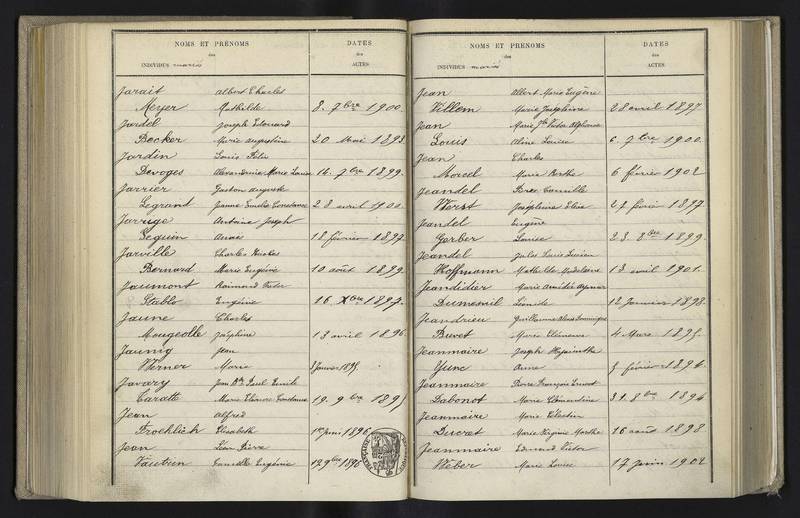 NOMS ET PRÉNOMS
des
INDIVIDUS mariés
DATES
des
ACTES
Jarait Albert Charles
Meyer Mathilde 8. 7bre 1900.
Jardel Joseph Edouard
Becker Marie Augustine 20 Mai 1893.
Jardin Louis Félix
Devoges Alexandrine Marie Louise 16. 7bre 1899.
Jarrier Gaston Auguste
Legrand Jeanne Emilie Constance 28 avril 1900.
Jarrige Antoine Joseph
Seguin Anaïs 18 février 1897.
Jarville Charles Nicolas
Bernard Marie Eugénie 10 août 1899.
Jaumont Raimond
Stablo Eugénie 16. Xbre 1897.
Jaune Charles
Mougeolle Joséphine 13 avril 1896.
Jaunig Jean
Werner Marie 3 Janvier 1895.
Javary Jean Paul Emile
Caratte Marie 19. 9bre 1895
Jean Alfred
Froehlich Elisabeth 1er Juin 1896
Jean Léon Pierre
Vautrin Camille Eugénie 12 9bre 1896
NOMS ET PRÉNOMS
des
INDIVIDUS mariés
DATES
des
ACTES
Jean Albert Marie Eugène
Villem Marie Joséphine 28 avril 1897
Jean Marie Victor Alphonse
Louis Aline Louise 6. 7bre 1900.
Jean Charles
Morcel Marie Berthe 6 février 1902
Jeandel Camille
Werst Joséphine Elise 27 février 1897.
Jeandel Eugène
Gerber Louise 23. 8bre 1899.
Jeandel Jules Louis Lucien
Hoffmann Mathilde Madeleine 13 avril 1901.
Jeandidier Marie Amédée
Dumesnil Léonide 12 Janvier 1898.
Jeandrieu Guillaume Dominique
Buvet Marie Clémence 4 Mars 1895.
Jeanmaire Joseph Hyacinthe
Yunc Anne 5 février 1894.
Jeanmaire Pierre François
Dabonot Marie Clémentine 31. 8bre 1894
Jeanmaire Marie Célestin
Ducret Marie Virginie Marthe 16 août 1898
Jeanmaire Edmond Victor
Weber Marie Louise 17 Juin 1902